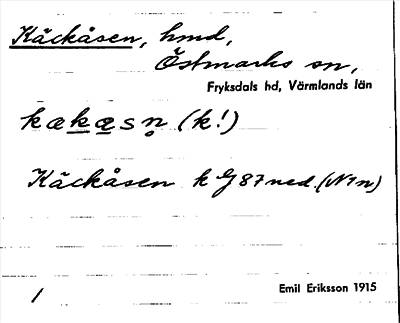 Käckåsen, hmd,
Östmarks sn,
Fryksdals hd, Värmlands län
kækæsn̥ (k!)
Käckåsen k G 87 ned. (N1n)
1
Emil Eriksson 1915